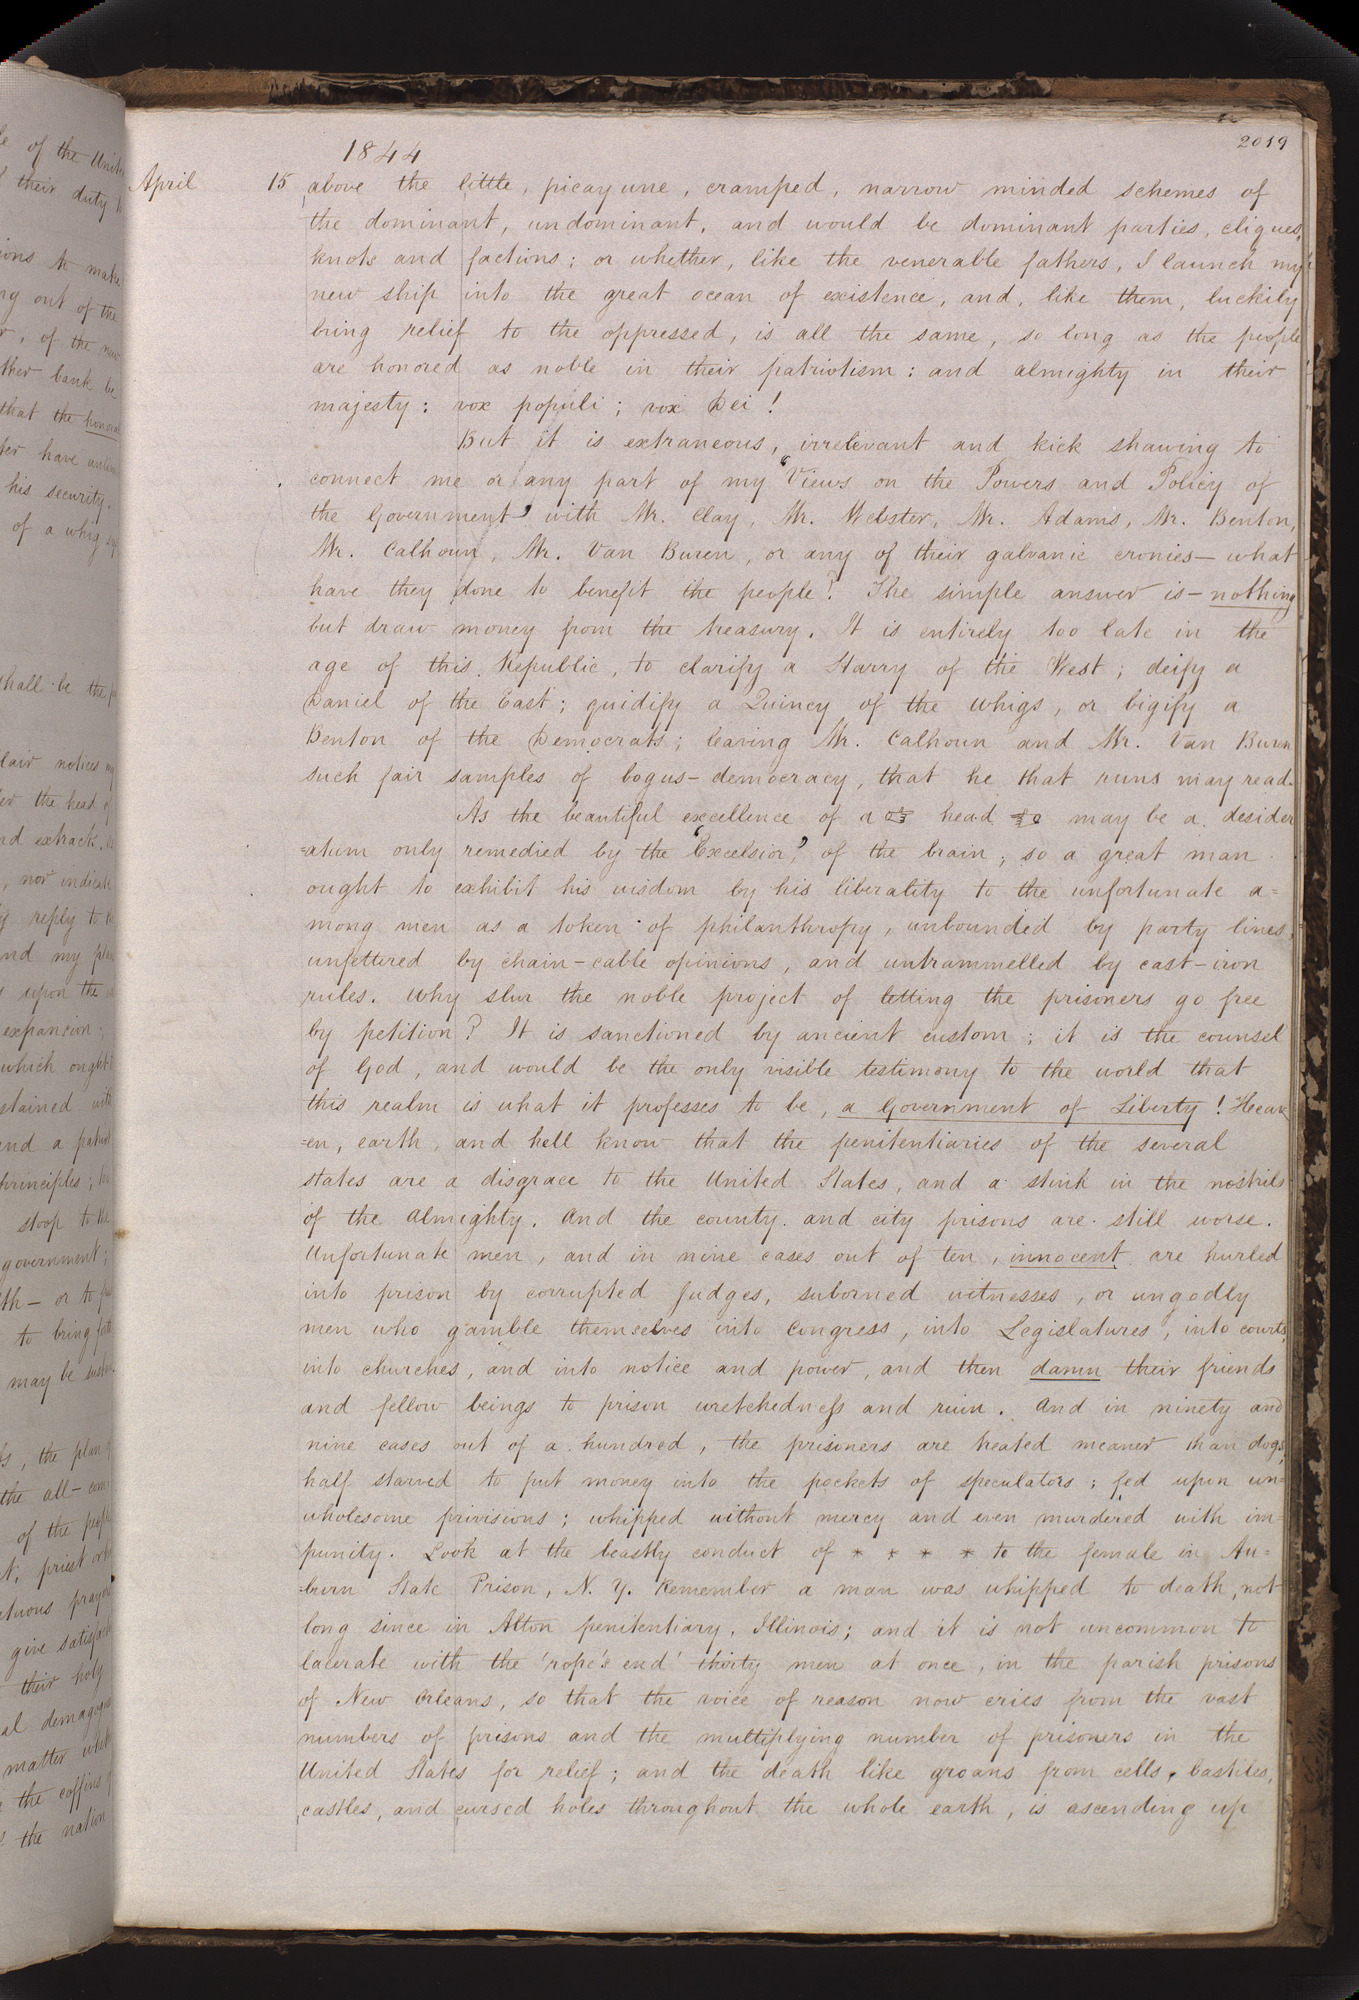 2019
1844
April 15 above the little, picayune, cramped, narrow minded schemes of
the dominant, undominant, and would be dominant parties, cliques,
knots and factions; or whether, like the venerable fathers, I launch my
new ship into the great ocean of existence, and, like them, luckily
bring relief to the oppressed, is all the same, so long as the people
are honored as noble in their patriotism: and almighty in their
majesty: vox populi; vox Dei!
But it is extraneous, irrelevant and kick shawing to
connect me or any part of my "Views on the Powers and Policy of
the Government" with Mr. Clay, Mr. Webster, Mr. Adams, Mr. Benton,
Mr. Calhoun, Mr. Van Buren, or any of their galvanic cronies— what
have they done to benefit the people? The simple answer is— nothing
but draw money from the treasury. It is entirely too late in the
age of this Republic, to clarify a Harry of the West; deify a
Daniel of the East; quidify a Quincy of the whigs, or bigify a
Benton of the Democrats; leaving Mr. Calhoun and Mr. Van Buren
such fair samples of bogus-democracy, that he that runs may read.
As the beautiful excellence of a head may be a desider
=atum only remedied by the "Excelsior," of the brain; so a great man
ought to exhibit his wisdom by his liberality to the unfortunate a=
mong men as a token of philanthropy, unbounded by party lines,
unfettered by chain-cable opinions, and untrammelled by cast-iron
rules. Why slur the noble project of letting the prisoners go free
by petition? It is sanctioned by ancient custom; it is the counsel
of God, and would be the only visible testimony to the world that
this realm is what it professes to be, a Government of Liberty! Heav
=en, earth and hell know that the penitentiaries of the several
states are a disgrace to the United States, and a stink in the nostrils
of the Almighty. And the county and city prisons are still worse.
Unfortunate men, and in nine cases out of ten, innocent are hurled
into prison by corrupted Judges, suborned witnesses, or ungodly
men who gamble themselves into Congress, into Legislatures, into courts,
into churches, and into notice and power, and then damn their friends
and fellow beings to prison wretchedness and ruin. And in ninety and
nine cases out of a hundred, the prisoners are treated meaner than dogs,
half starved to put money into the pockets of speculators; fed upon un=
wholesome privisions; whipped without mercy and even murdered with im=
punity. Look at the beastly conduct of * * * * to the female in Au=
=burn State Prison, N. Y. Remember a man was whipped to death, not
long since in Alton penitentiary, Illinois; and it is not uncommon to
lacerate with the 'rope's end' thirty men at once, in the parish prisons
of New Orleans, so that the voice of reason now cries from the vast
numbers of prisons and the multiplying number of prisoners in the
United States for relief; and the death like groans from cells, bastiles,
castles, and cursed holes throughout the whole earth, is ascending up